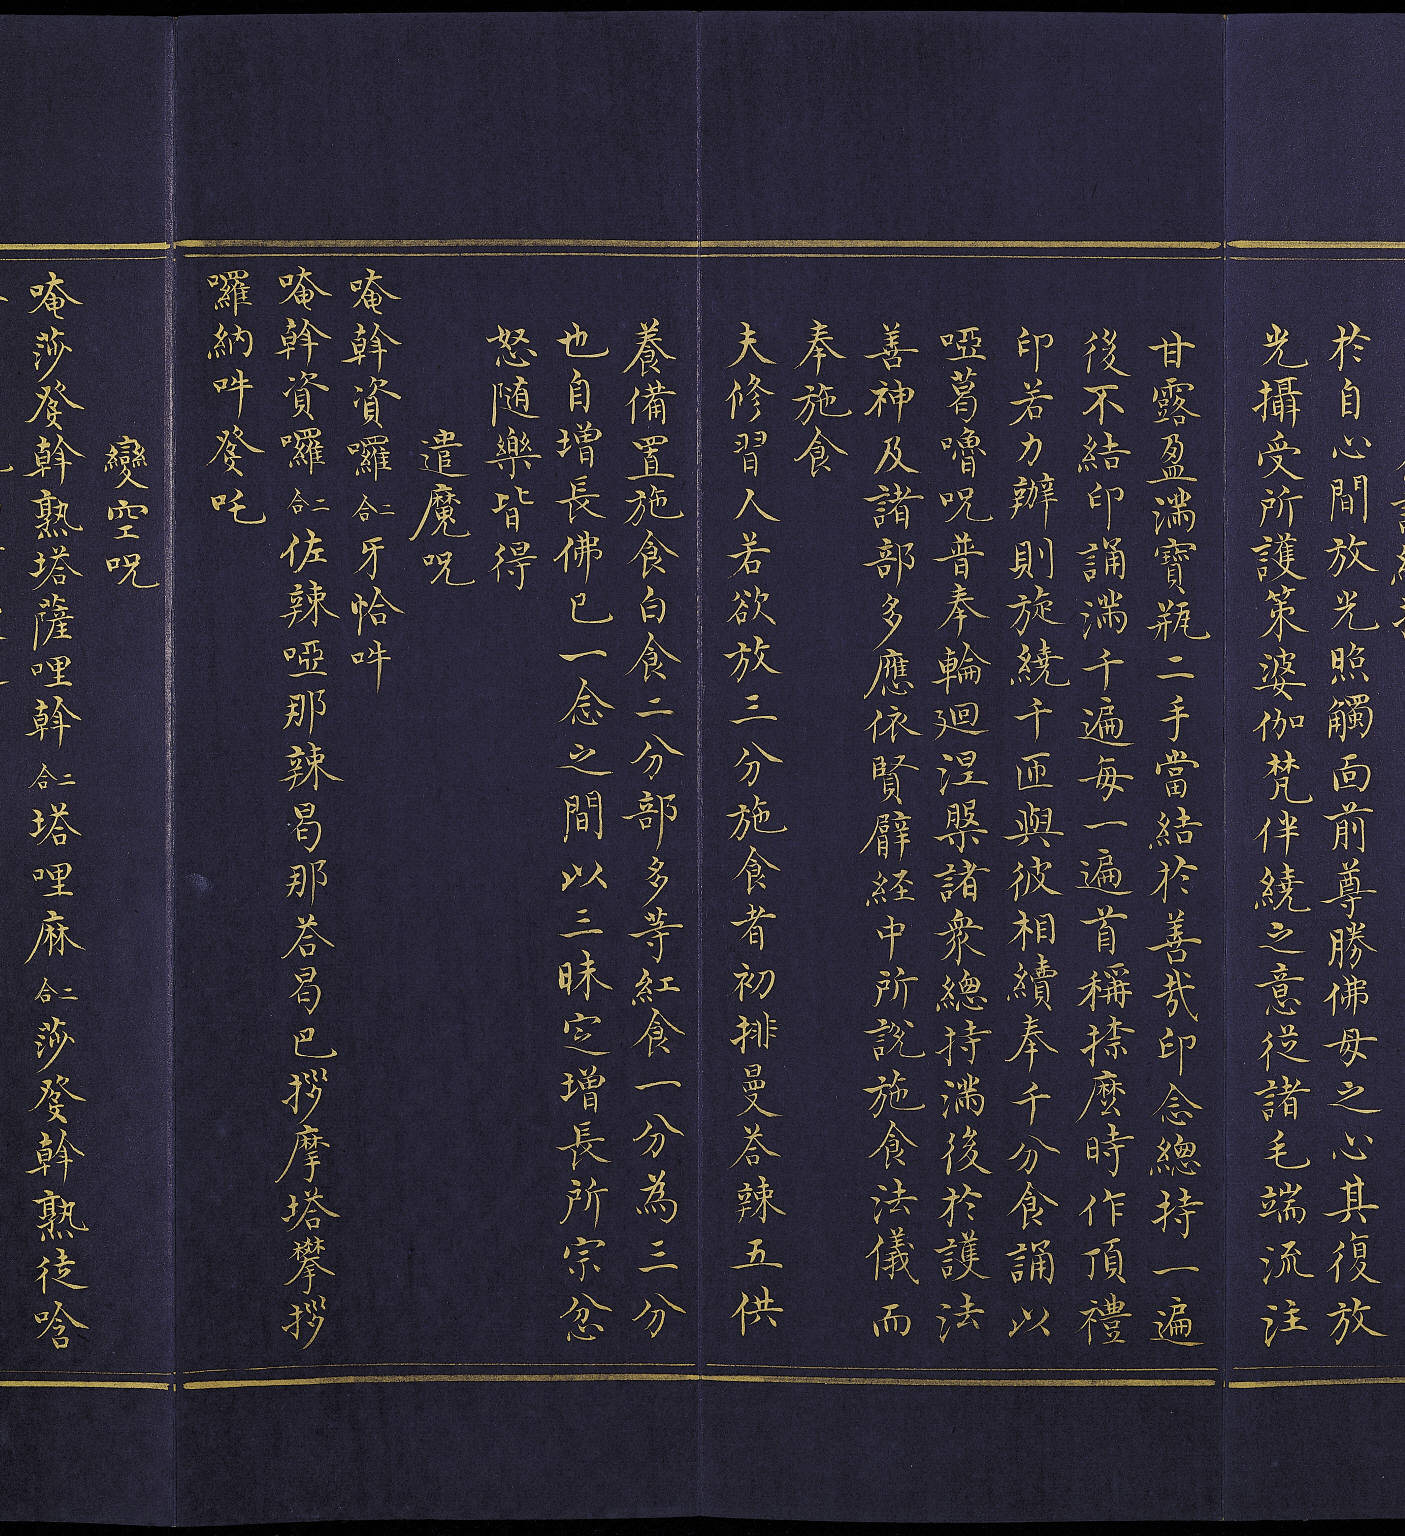 於自心間放光照觸面前尊勝佛母之心其復放
光攝受所護策婆伽梵伴繞之意從諸毛端流注
甘露盈滿寶瓶二手當結於善哉印念總持一遍
後不結印誦滿千遍每一遍首稱捺麼時作頂禮
印若力辦則旋繞千匝與彼相續奉千分食誦以
啞葛嚕呪普奉輪迴涅槃諸衆總持滿後於護法
善神及諸部多應依賢臂経中所說施食法儀而
奉施食
夫修習人若欲放三分施食者初排曼荅辣五供
養備置施食白食二分部多等紅食一分為三分
也自增長佛已一念之間以三昧定增長所宗忿
怒随樂皆得
遣魔呪
唵斡資囉二合牙恰吽
唵斡資囉二合佐辣啞那辣曷那荅曷巴拶摩塔攀拶
囉納吽發吒
變空呪
唵莎發斡熟塔薩哩斡二合塔哩麻二合莎發斡熟徒唅